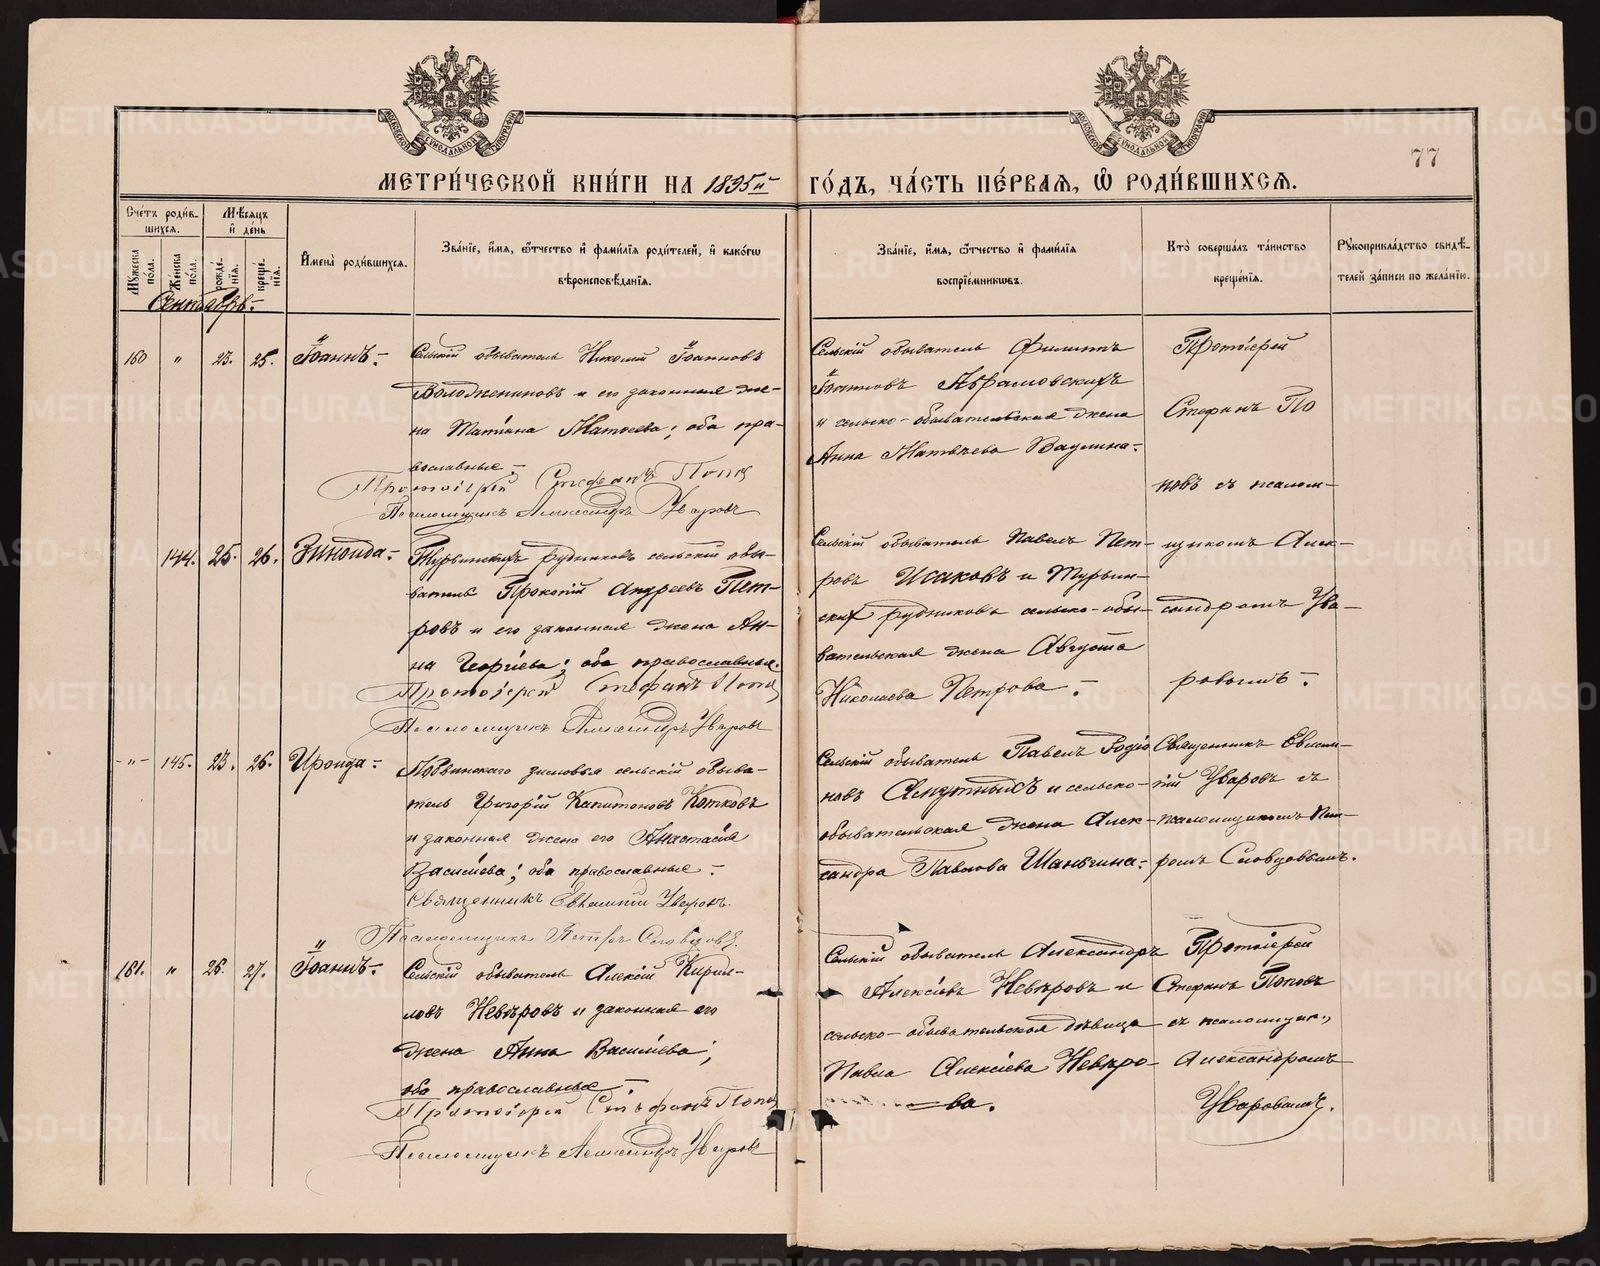 77
МЕТРИ́ЧЕСКОЙ КНИ́ГИ НА 1895й ГО́ДЪ, ЧА́СТЬ ПЕ́РВАЯ, Ѡ РОДИ́ВШИХСЯ.
Сче́тъ роди́в-
шихся.
Мѣ́сяцъ
и҆ де́нь
Мꙋ́жеска по́ла.
Же́нска по́ла.
рожде́-
нїѧ.
креще́-
нїѧ.
И҆мена̀ роди́вшихся.
Зва́нїе, и҆́мя, ѻ҆́тчество и҆ фами́лїя роди́телей, и҆ како́гѡ
вѣроисповѣ́данїя.
Зва́нїе, и҆́мя, ѻ҆́тчество и҆ фами́лїя
воспрїе́мникѡвъ.
Кто̀ соверша́лъ та́инство
креще́нїя.
Рꙋкоприкла́дство свидѣ́-
телей за́писи по жела́нїю.
Сентябрь.
160 " 23. 25. Іоаннъ.
Сельскій обыватель Николай Іоанновъ
Володжениновъ и его законная же-
на Татіана Матѳеева; оба пра-
вославные.
Протоіерей Стефанъ Попо
Псаломщикъ Александръ Уваровъ
Сельскій обыватель Филиппъ
Іоанновъ Абрамовскихъ
и сельско-обывательская жена
Анна Матвѣева Ваулина.
Протоіерей
Стефанъ По
новъ съ псалом-
щикомъ Алек-
сандромъ Ува-
ровымъ.
144. 25. 26. Зинаида.
Турьинскихъ рудниковъ сельскій обы-
ватель Прокопій Андреевъ Пет-
ровъ и его законная жена Ан-
на Георгіева; оба православные.
Протоіерей Стефанъ Попо
Псаломщикъ Александръ Уваровъ
Сельскій обыватель Павелъ Пет-
ровъ Исаковъ и Турьин-
скихъ рудниковъ сельско-обы-
вательская жена Августа
Николаева Петрова.
-"- 145. 23. 26. Ираида.
сельскій обыва-
тель Григорій Капитоновъ Котковъ
и законная жена его Анастасія
Василіева; оба православные.
Священникъ Евѳимій Уваровъ.
Псаломщикъ Петръ Словцовъ.
Сельскій обыватель Павелъ Родіо
новъ и сельско-
обывательская жена Алек-
сандра Павлова Шаньгина.
Священникъ Евѳи-
мій Уваровъ съ
псаломщикомъ Пет-
ромъ Словцовымъ.
161. " 26. 27. Іоаннъ.
Сельскій обыватель Алексій Кирил-
ловъ Невѣровъ и законная его
жена Анна Василіева;
оба православные.
Протоіерей Стефанъ Попо
Псаломщикъ Александръ Уваровъ
Сельскій обыватель Александръ
Алексіевъ Невѣровъ и
сельско-обывательская дѣвица
Павла Алексіева Невѣро-
ва.
Протоіерей
Стефанъ Поповъ
съ псаломщик.,
Александромъ
Уваровымъ.
METRIKI.GASO-URAL.RU